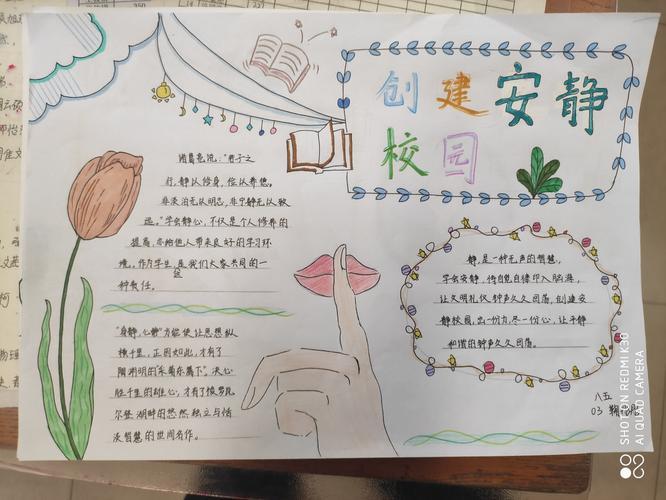 创建安静
校园
诸葛亮说:"君子之
行,静以修身,俭以养德。
非淡泊无以明志,非宁静无以致
远。"学会静心,不仅是个人修养的
提高,亦给他人带来良好的学习环
境。作为学生 应是我们大家共同的一
种责任。
"身静,心静"方能使让思想纵
横千里,正因如此,才有了
陶渊明的"采菊东篱下"。决心
胜千里的雄心,才有了梭罗瓦
尔登湖畔的悠然独立与恬
淡智慧的世间名作。
静,是一种无声的智慧,
学会安静,将自觉自律印入脑海,
让文明礼仪钟声久久回荡,创建安
静校园,出一份力,尽一份心,让平静
和谐的钟声久久回荡。
八五
03
SHOT ON REDMI K30
AI QUAD CAMERA